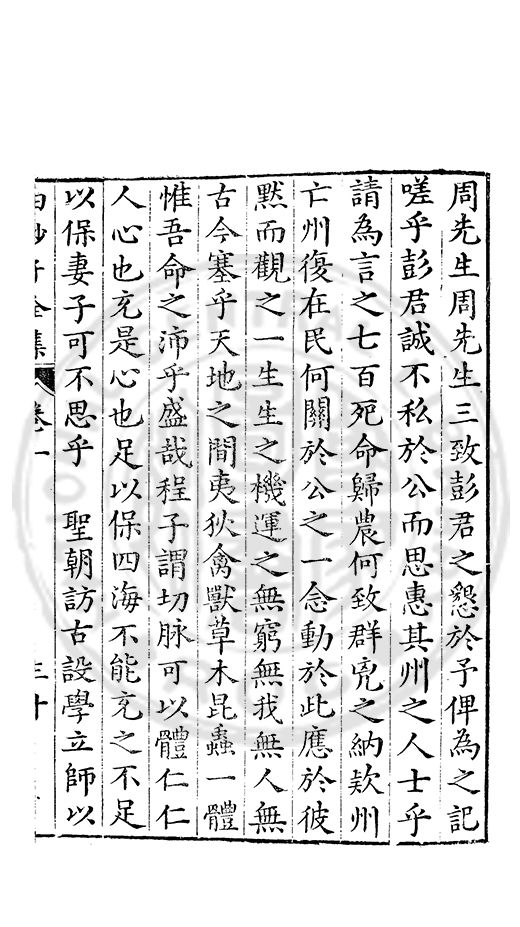 周先生周先生三致彭君之懇於予俾為之記
嗟乎彭君誠不私於公而思惠其州之人士乎
請為言之七百死命歸農何致群兇之納欵州
亡州復在民何關於公之一念動於此應於彼
默而觀之一生生之機運之無窮無我無人無
古今塞乎天地之間夷狄禽獸草木昆蟲一體
惟吾命之沛乎盛哉程子謂切脉可以體仁仁
人心也充是心也足以保四海不能充之不足
以保妻子可不思乎　聖朝訪古設學立師以
白沙子全集　卷一　三十